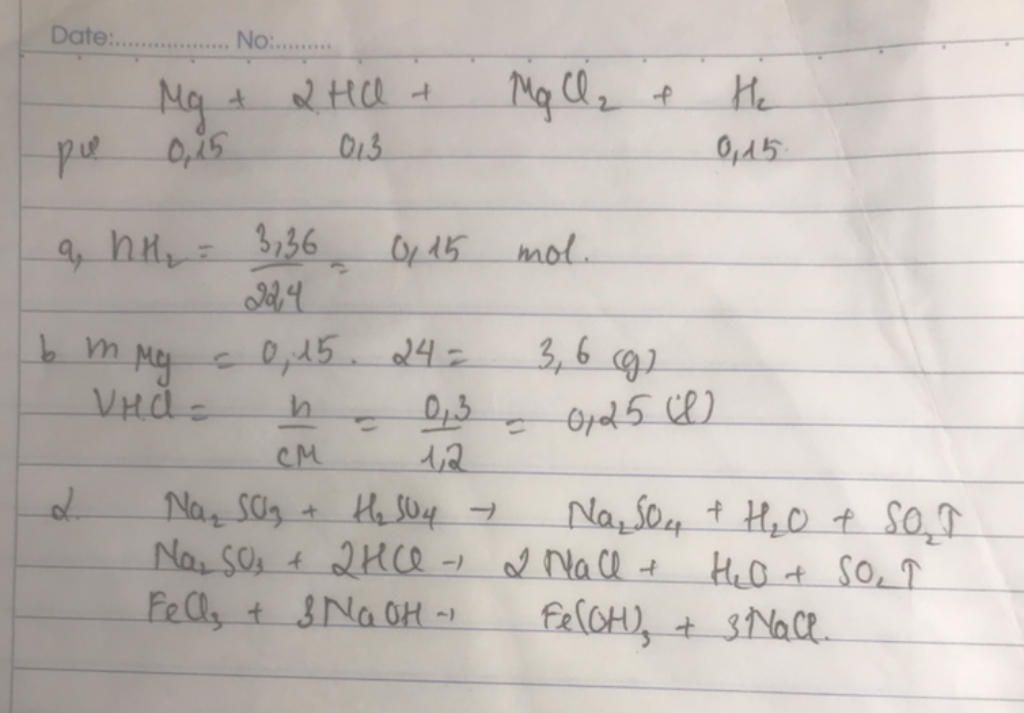 Date:.................. No:.........
Mg + 2 HCl + MgCl₂ + H₂
pư 0,15 0,3 0,15
a, nH₂ = 3,36/22,4 = 0,15 mol.
b m Mg = 0,15. 24 = 3,6 (g)
VHCl = n/CM = 0,3/1,2 = 0,25 (l)
2. Na₂SO₃ + H₂SO₄ → Na₂SO₄ + H₂O + SO₂↑
Na₂SO₃ + 2HCl → 2 NaCl + H₂O + SO₂↑
FeCl₃ + 3NaOH → Fe(OH)₃ + 3NaCl.